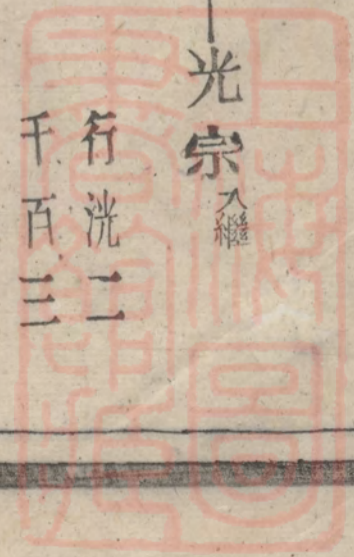 光宗入繼
行洸二
千百三